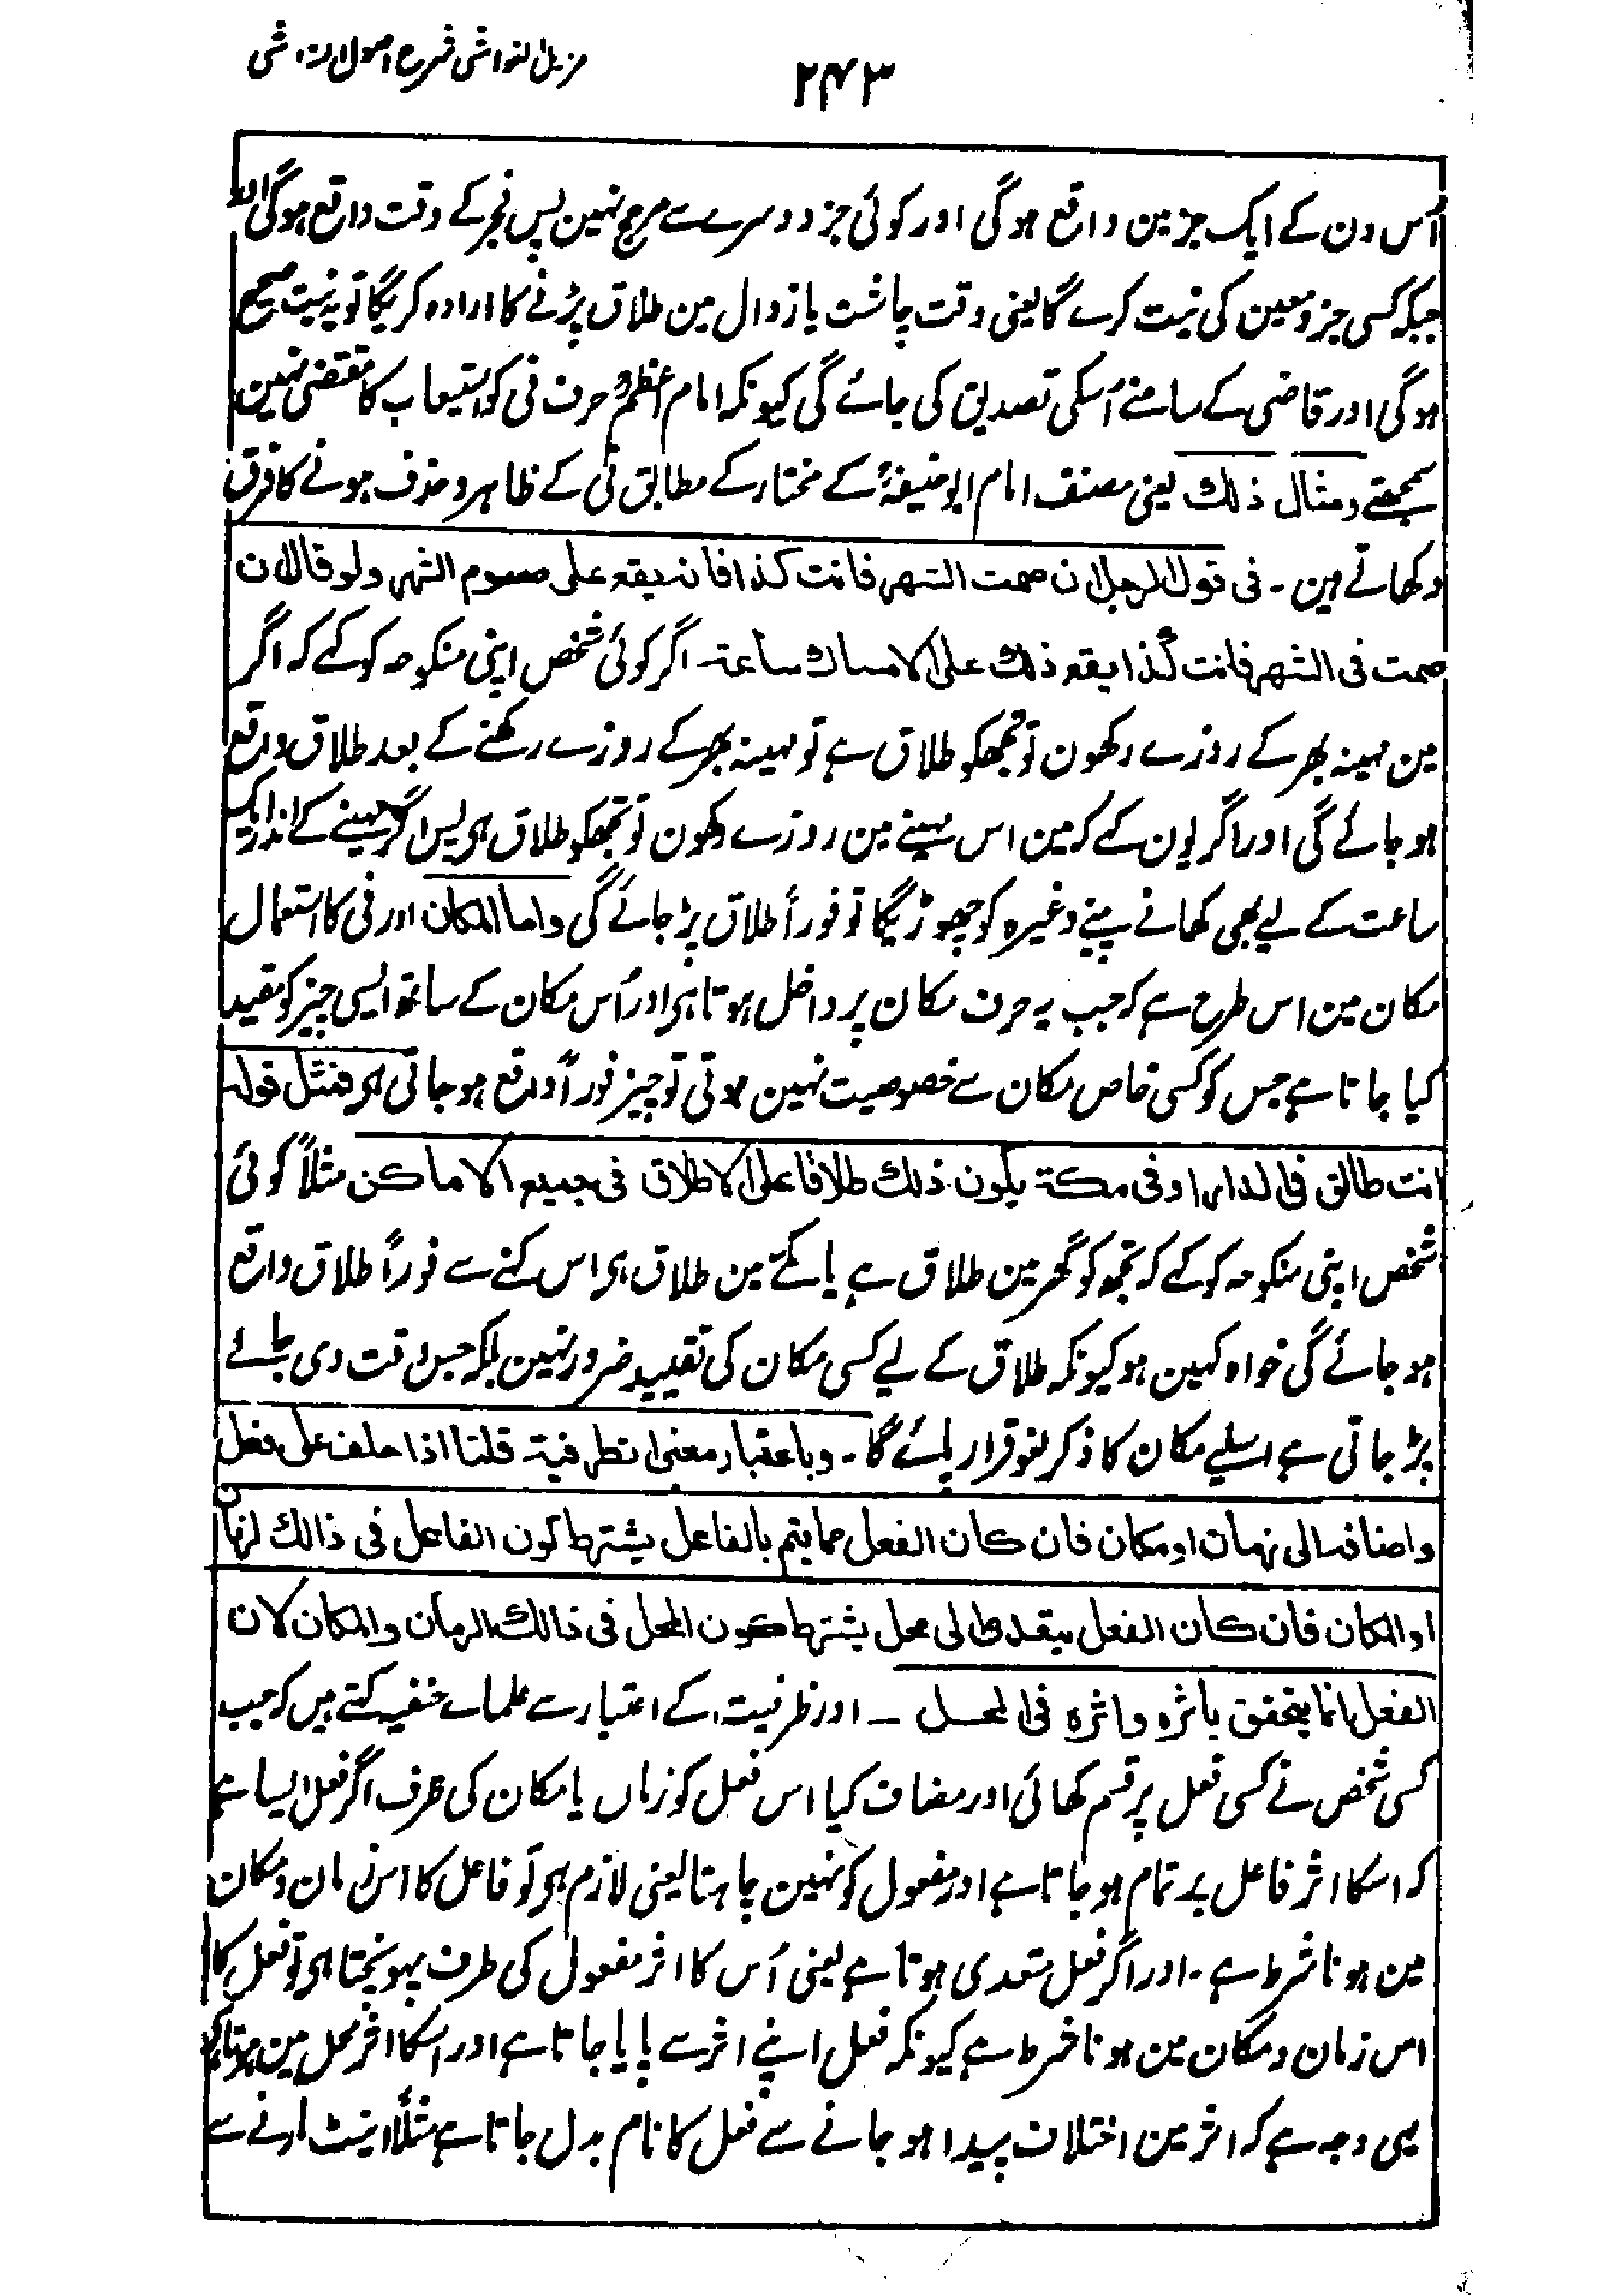 مزیل الغواشی شرح اصول الشاشی
۲۴۳
اُس دن کے ایک جز مین واقع ہوگی اور کوئی جز دوسرے سے مرجح نہین پس فجر کے وقت واقع ہوگی اور
جبکہ کسی جزو معین کی نیت کرے گا یعنی وقت چاشت یا زوال مین طلاق پڑنے کا ارادہ کریگا تو یہ نیت صحیح
ہوگی اور قاضی کے سامنے اُسکی تصدیق کی جائے گی کیونکہ امام اعظمؒ حرف فی کو استیعاب کا مقتضی نہین
سمجھتے ومثال ذلک یعنی مصنف امام ابوحنیفہؒ کے مختار کے مطابق فی کے ظاہر و حذف ہونے کا فرق
دکھاتے ہین ۔ فی قول الرجل ان صمت الشهر فانت کذا فانه یقع علی صوم الشهر ولو قال ان
صمت فی الشهر فانت کذا یقع ذلک علی الامساک ساعة ۔ اگر کوئی شخص اپنی منکوحہ کو کہے کہ اگر
مین مہینہ بھر کے روزے رکھون تو تجھکو طلاق ہے تو مہینہ بھر کے روزے رکھنے کے بعد طلاق واقع
ہو جائے گی اور اگر یون کہے کہ مین اس مہینے مین روزے رکھون تو تجھکو طلاق ہی پس اگر مہینے کے اندر ایک
ساعت کے لیے بھی کھانے پینے وغیرہ کو چھوڑیگا تو فوراً طلاق پڑ جائے گی واما المکان اور فی کا استعمال
مکان مین اس طرح ہے کہ جب یہ حرف مکان پر داخل ہوتا ہی اور اُس مکان کے ساتھ ایسی چیز کو مقید
کیا جاتا ہے جس کو کسی خاص مکان سے خصوصیت نہین ہوتی تو چیز فوراً واقع ہو جاتی ہی فمثل قوله
انت طالق فی الدار او فی مکة یکون ذلک طلاقا علی الاطلاق فی جمیع الاماکن مثلاً کوئی
شخص اپنی منکوحہ کو کہے کہ تجھ کو گھر مین طلاق ہے یا مکّے مین طلاق ہی اس کہنے سے فوراً طلاق واقع
ہو جائے گی خواہ کہین ہو کیونکہ طلاق کے لیے کسی مکان کی تقیید ضرور نہین بلکہ جس وقت دی جائے
پڑ جاتی ہے اسلیے مکان کا ذکر لغو قرار پائے گا ۔ وباعتبار معنی الظرفیة قلنا اذا حلف علی فعل
واضافه الی زمان او مکان فان کان الفعل مما یتم بالفاعل یشترط کون الفاعل فی ذالک الزمان
او المکان فان کان الفعل یتعدی الی محل یشترط کون المحل فی ذالک الزمان والمکان لان
الفعل انما یتحقق باثره واثره فی المحل ۔ اور ظرفیت کے اعتبار سے علماے حنفیہ کہتے ہیں کہ جب
کسی شخص نے کسی فعل پر قسم کھائی اور مضاف کیا اس فعل کو زماں یا مکان کی طرف اگر فعل ایسا ہے
کہ اسکا اثر فاعل پر تمام ہو جاتا ہے اور مفعول کو نہین چاہتا یعنی لازم ہی تو فاعل کا اس زمان و مکان
مین ہونا شرط ہے ۔ اور اگر فعل متعدی ہوتا ہے یعنی اُس کا اثر مفعول کی طرف پہونچتا ہی تو فعل کا
اس زمان و مکان مین ہونا شرط ہے کیونکہ فعل اپنے اثر سے پایا جاتا ہے اور اسکا اثر محل مین ہوتا ہی
یہی وجہ ہے کہ اثر مین اختلاف پیدا ہو جانے سے فعل کا نام بدل جاتا ہے مثلاً اینٹ مارنے سے